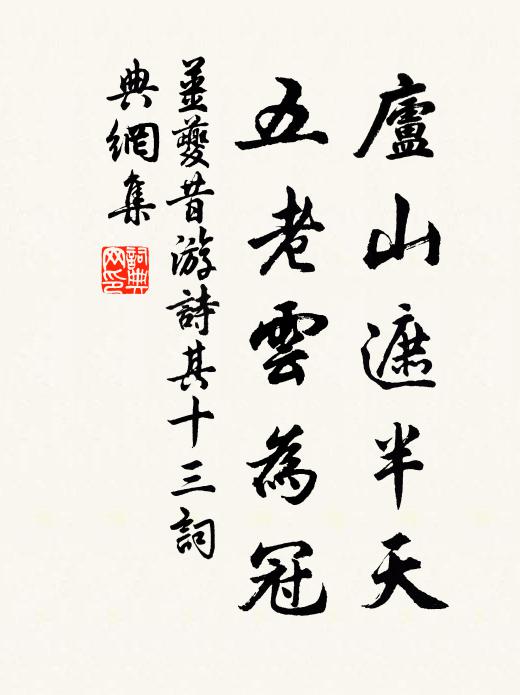 廬山遮半天
五老雲為冠
薑夔昔游詩其十三詞
典網集
詞典
网印